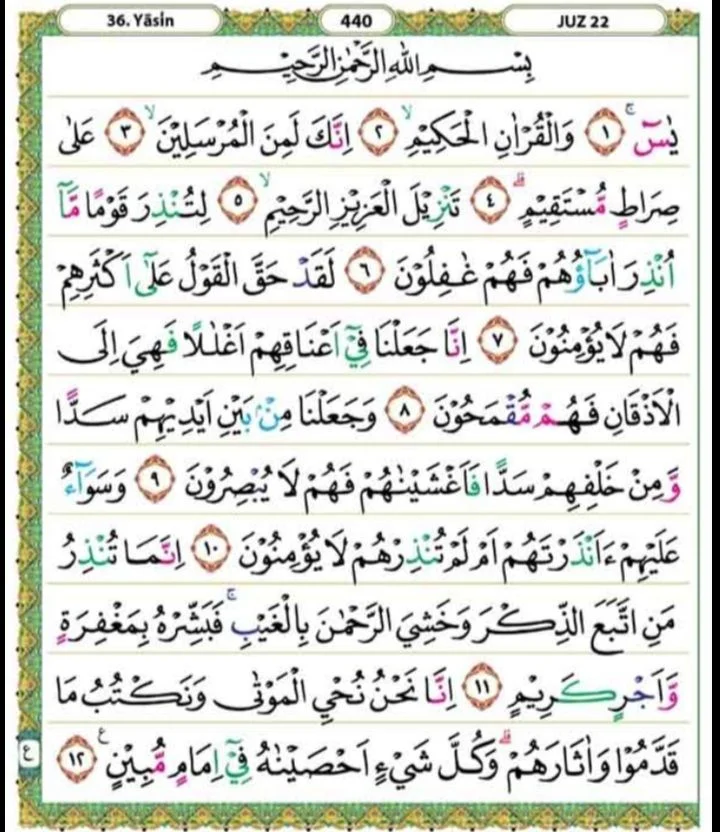 36. Yāsīn
440
JUZ 22
بِسْمِ اللّٰهِ الرَّحْمٰنِ الرَّحِيْمِ
يٰسۤ ۚ ١ وَالْقُرْاٰنِ الْحَكِيْمِ ۙ ٢ اِنَّكَ لَمِنَ الْمُرْسَلِيْنَ ۙ ٣ عَلٰى
صِرَاطٍ مُّسْتَقِيْمٍ ۗ ٤ تَنْزِيْلَ الْعَزِيْزِ الرَّحِيْمِ ۙ ٥ لِتُنْذِرَ قَوْمًا مَّآ
اُنْذِرَ اٰبَاۤؤُهُمْ فَهُمْ غٰفِلُوْنَ ٦ لَقَدْ حَقَّ الْقَوْلُ عَلٰٓى اَكْثَرِهِمْ
فَهُمْ لَا يُؤْمِنُوْنَ ٧ اِنَّا جَعَلْنَا فِيْٓ اَعْنَاقِهِمْ اَغْلٰلًا فَهِيَ اِلَى
الْاَذْقَانِ فَهُمْ مُّقْمَحُوْنَ ٨ وَجَعَلْنَا مِنْۢ بَيْنِ اَيْدِيْهِمْ سَدًّا
وَّمِنْ خَلْفِهِمْ سَدًّا فَاَغْشَيْنٰهُمْ فَهُمْ لَا يُبْصِرُوْنَ ٩ وَسَوَاۤءٌ
عَلَيْهِمْ ءَاَنْذَرْتَهُمْ اَمْ لَمْ تُنْذِرْهُمْ لَا يُؤْمِنُوْنَ ١٠ اِنَّمَا تُنْذِرُ
مَنِ اتَّبَعَ الذِّكْرَ وَخَشِيَ الرَّحْمٰنَ بِالْغَيْبِ ۚ فَبَشِّرْهُ بِمَغْفِرَةٍ
وَّاَجْرٍ كَرِيْمٍ ١١ اِنَّا نَحْنُ نُحْيِ الْمَوْتٰى وَنَكْتُبُ مَا
قَدَّمُوْا وَاٰثَارَهُمْ ۗ وَكُلَّ شَيْءٍ اَحْصَيْنٰهُ فِيْٓ اِمَامٍ مُّبِيْنٍ ࣖ ١٢
ع